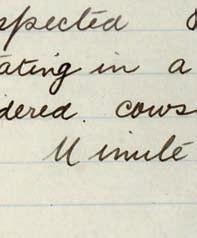 spected
ating in a
dered. cows
Minute